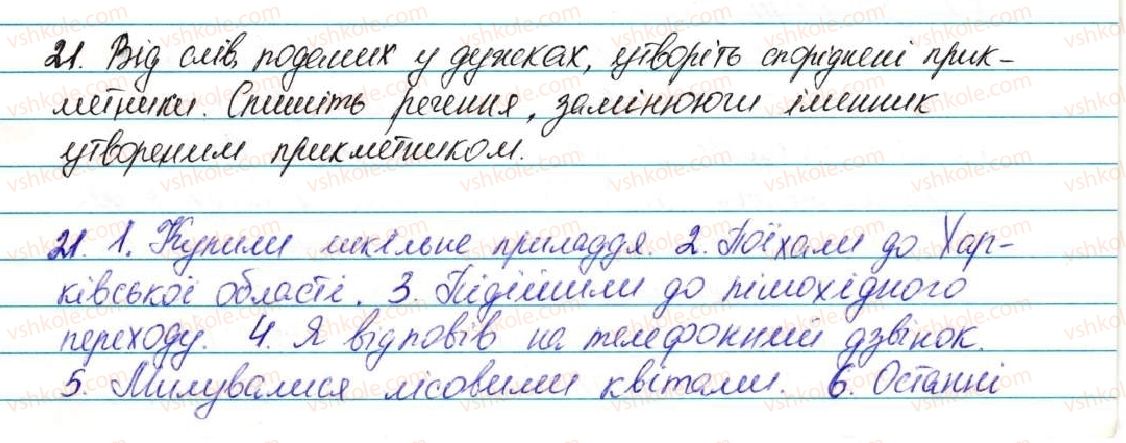 21. Від слів, поданих у дужках, утворіть споріднені прик-
метники. Спишіть речення, замінюючи іменник
утвореним прикметником.
21. 1. Купили шкільне приладдя. 2. Поїхали до Хар-
ківської області. 3. Підійшли до пішохідного
переходу. 4. Я відповів на телефонний дзвінок.
5. Милувалися лісовими квітами. 6. Останні